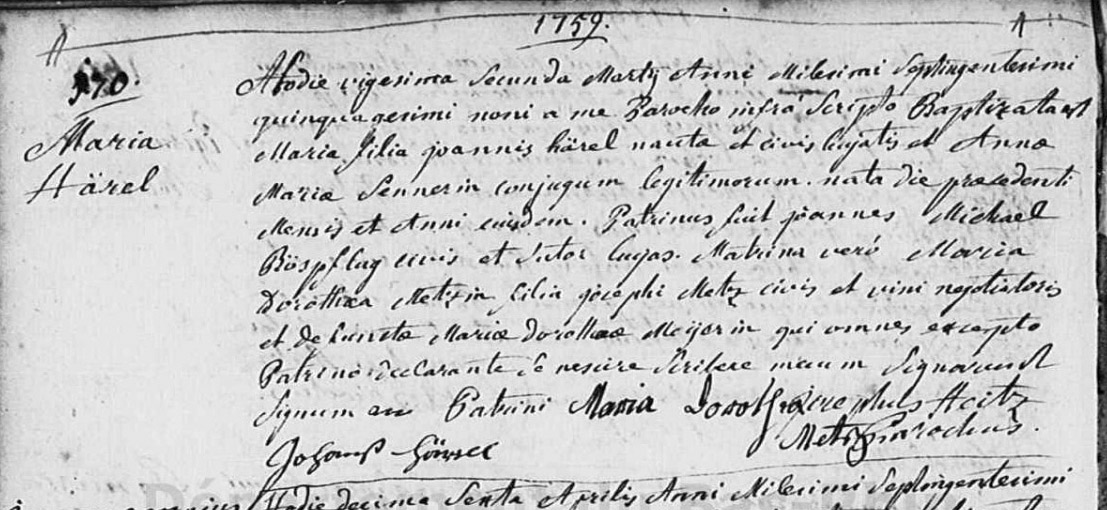 1759.
170.
Maria
Härel
Hodie vigesima Secunda Martij Anni Milesimi Septingentesimi
quinquagesimi noni a me Parocho infra Scripto Baptizata est
Maria filia joannis härel nautæ et civis hujatis et Annæ
Mariæ Sennerin conjugum legitimorum. nata die præcedenti
Mensis et Anni eiusdem. Patrinus fuit joannes Michael
Böspflug civis et Sutor hujas. Matrina verò Maria
Dorothea Metzin filia josephi Metz civis et vini negotiatoris
et defunctæ Mariæ Dorotheæ Meijerin qui omnes excepto
Patrino declarante se nescire scribere mecum Signarunt
Signum Patrini Maria Doroth josephus Heitz
Metz Parochus.
Johans Härrel
Hodie decima Sexta Aprilis Anni Milesimi Septingentesimi